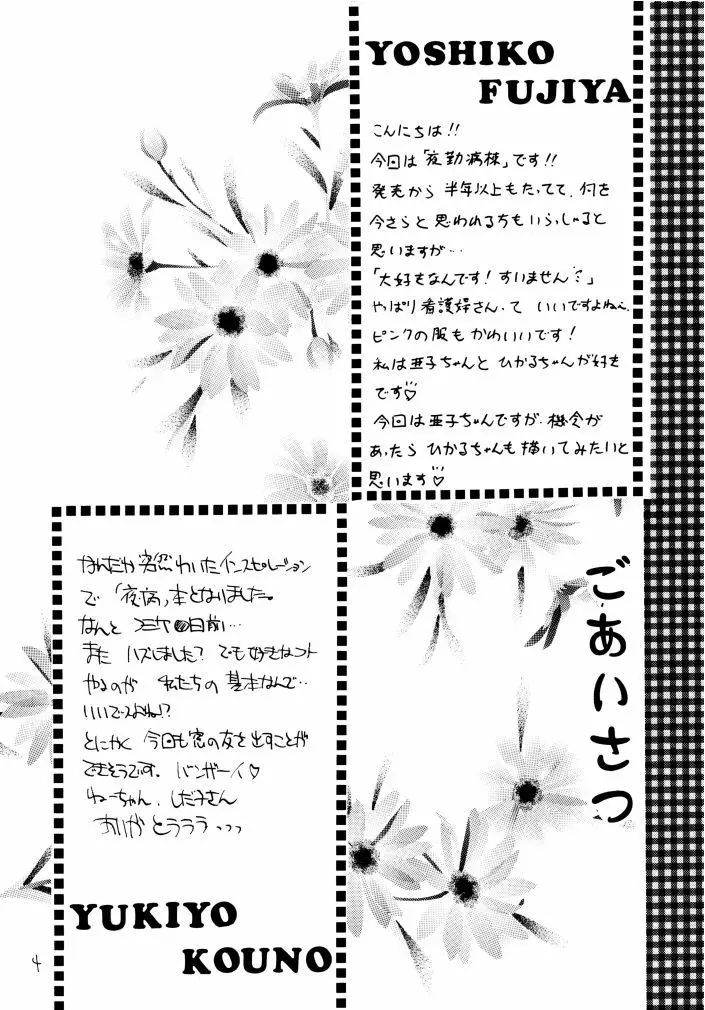 YOSHIKO
FUJIYA
こんにちは!!
今回は「夜勤病棟」です!!
発売から 半年以上もたってて、何を
今さらと思われる方もいらっしゃると
思いますが…
「大好きなんです!すいません?」
やっぱり看護婦さんって いいですよねぇ、
ピンクの服もかわいいです!
私は亜子ちゃんと ひかるちゃんが好き
です♡
今回は亜子ちゃんですが、機会が
あったら ひかるちゃんも描いてみたいと
思います♡
ごあいさつ
なんだか突然わいたインスピレーション
で「夜病」本となりました。
なんと コミケ 日前…
また ハズしました?でも好きなコト
やるのが 私たちの基本なんで…
いいですよね!?
とにかく 今回も窓の友を出すことが
できそうです。バンザーイ♡
ねーちゃん、しだ子さん
ありがとうううっっっ
YUKIYO
KOUNO
4